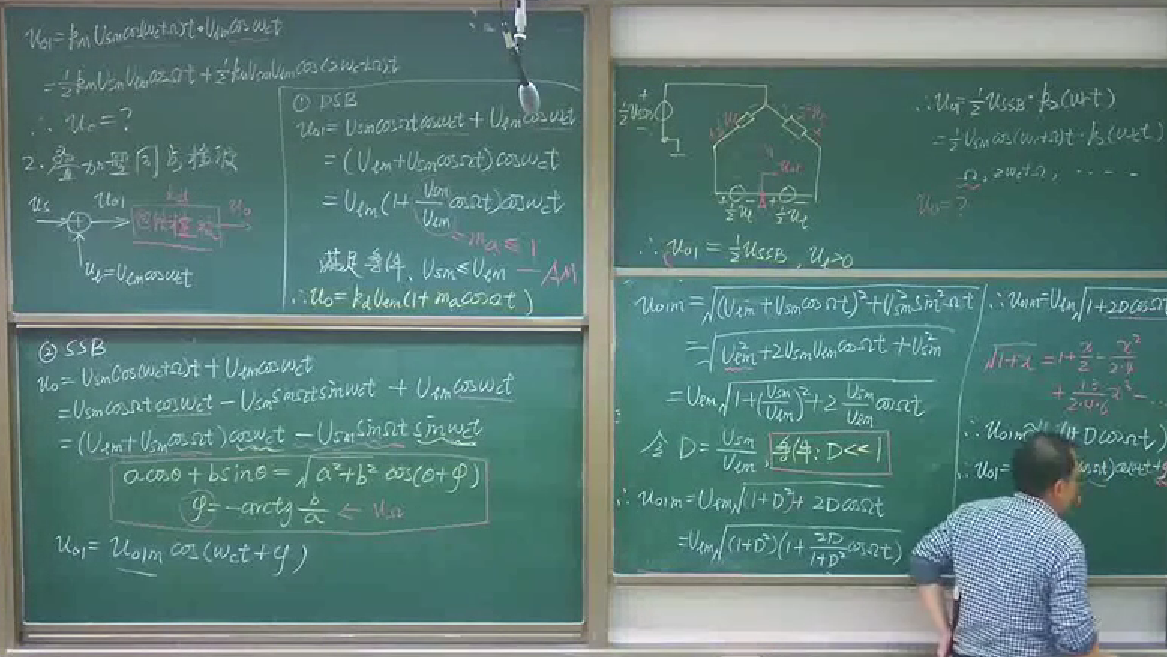 u₀₁ = k_m U_sm cos(ω_c+Ω)t · U_ℓm cosω_ct
= ½k_m U_sm U_ℓm cosΩt + ½k_m U_sm U_ℓm cos(2ω_c+Ω)t
∴ u₀ = ?
2. 叠加型同步检波
u_s
u₀₁
k_d
包络检波
u₀
u_ℓ = U_ℓm cosω_ct
① DSB
u₀₁ = U_sm cosΩt cosω_ct + U_ℓm cosω_ct
= (U_ℓm + U_sm cosΩt) cosω_ct
= U_ℓm (1 + U_sm/U_ℓm cosΩt) cosω_ct
m_a ≤ 1
满足条件, U_sm ≤ U_ℓm — AM
∴ u₀ = k_d U_ℓm (1 + m_a cosΩt)
② SSB
u₀ = U_sm cos(ω_c+Ω)t + U_ℓm cosω_ct
= U_sm cosΩt cosω_ct − U_sm sinΩt sinω_ct + U_ℓm cosω_ct
= (U_ℓm + U_sm cosΩt) cosω_ct − U_sm sinΩt sinω_ct
a cosθ + b sinθ = √(a²+b²) cos(θ+φ)
φ = −arctg b/a ←
u₀₁ = U₀₁m cos(ω_ct + φ)
+ −
½u_ℓ ½u_ℓ
∴ u₀₁ = ½u_SSB, u_ℓ > 0
= ½U_sm cos(ω_c+Ω)t · k₂(ω_ct)
Ω, 2ω_c+Ω, ······
u₀ = ?
u₀₁m = √((U_ℓm + U_sm cosΩt)² + U_sm² sin²Ωt)
= √(U_ℓm² + 2U_sm U_ℓm cosΩt + U_sm²)
= U_ℓm √(1 + (U_sm/U_ℓm)² + 2 U_sm/U_ℓm cosΩt)
令 D = U_sm/U_ℓm, 条件: D << 1
∴ u₀₁m = U_ℓm √((1+D²) + 2D cosΩt)
= U_ℓm √((1+D²)(1 + 2D/(1+D²) cosΩt))
∴ u₀₁m = U_ℓm √(1+2D cosΩt
√(1+x) = 1 + x/2 − x²/(2·4)
+ 1·3/(2·4·6) x³ − ...